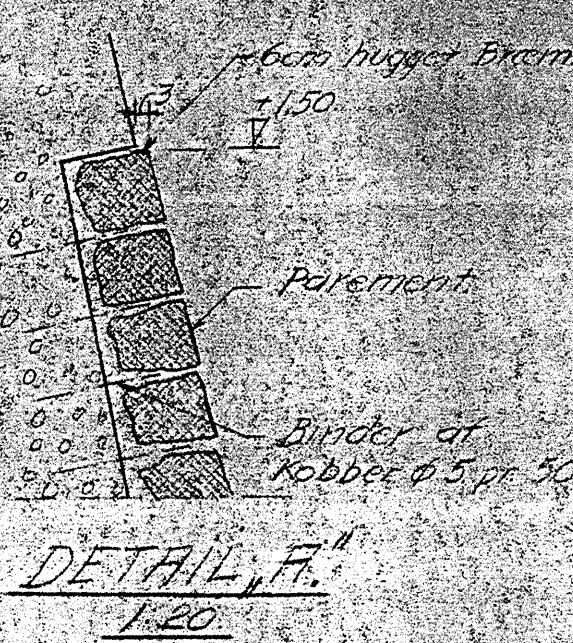 6cm hugget Bræm
3
+1.50
Parement
Binder af
Kobber ϕ 5 pr. 50
DETAIL „A."
1:20